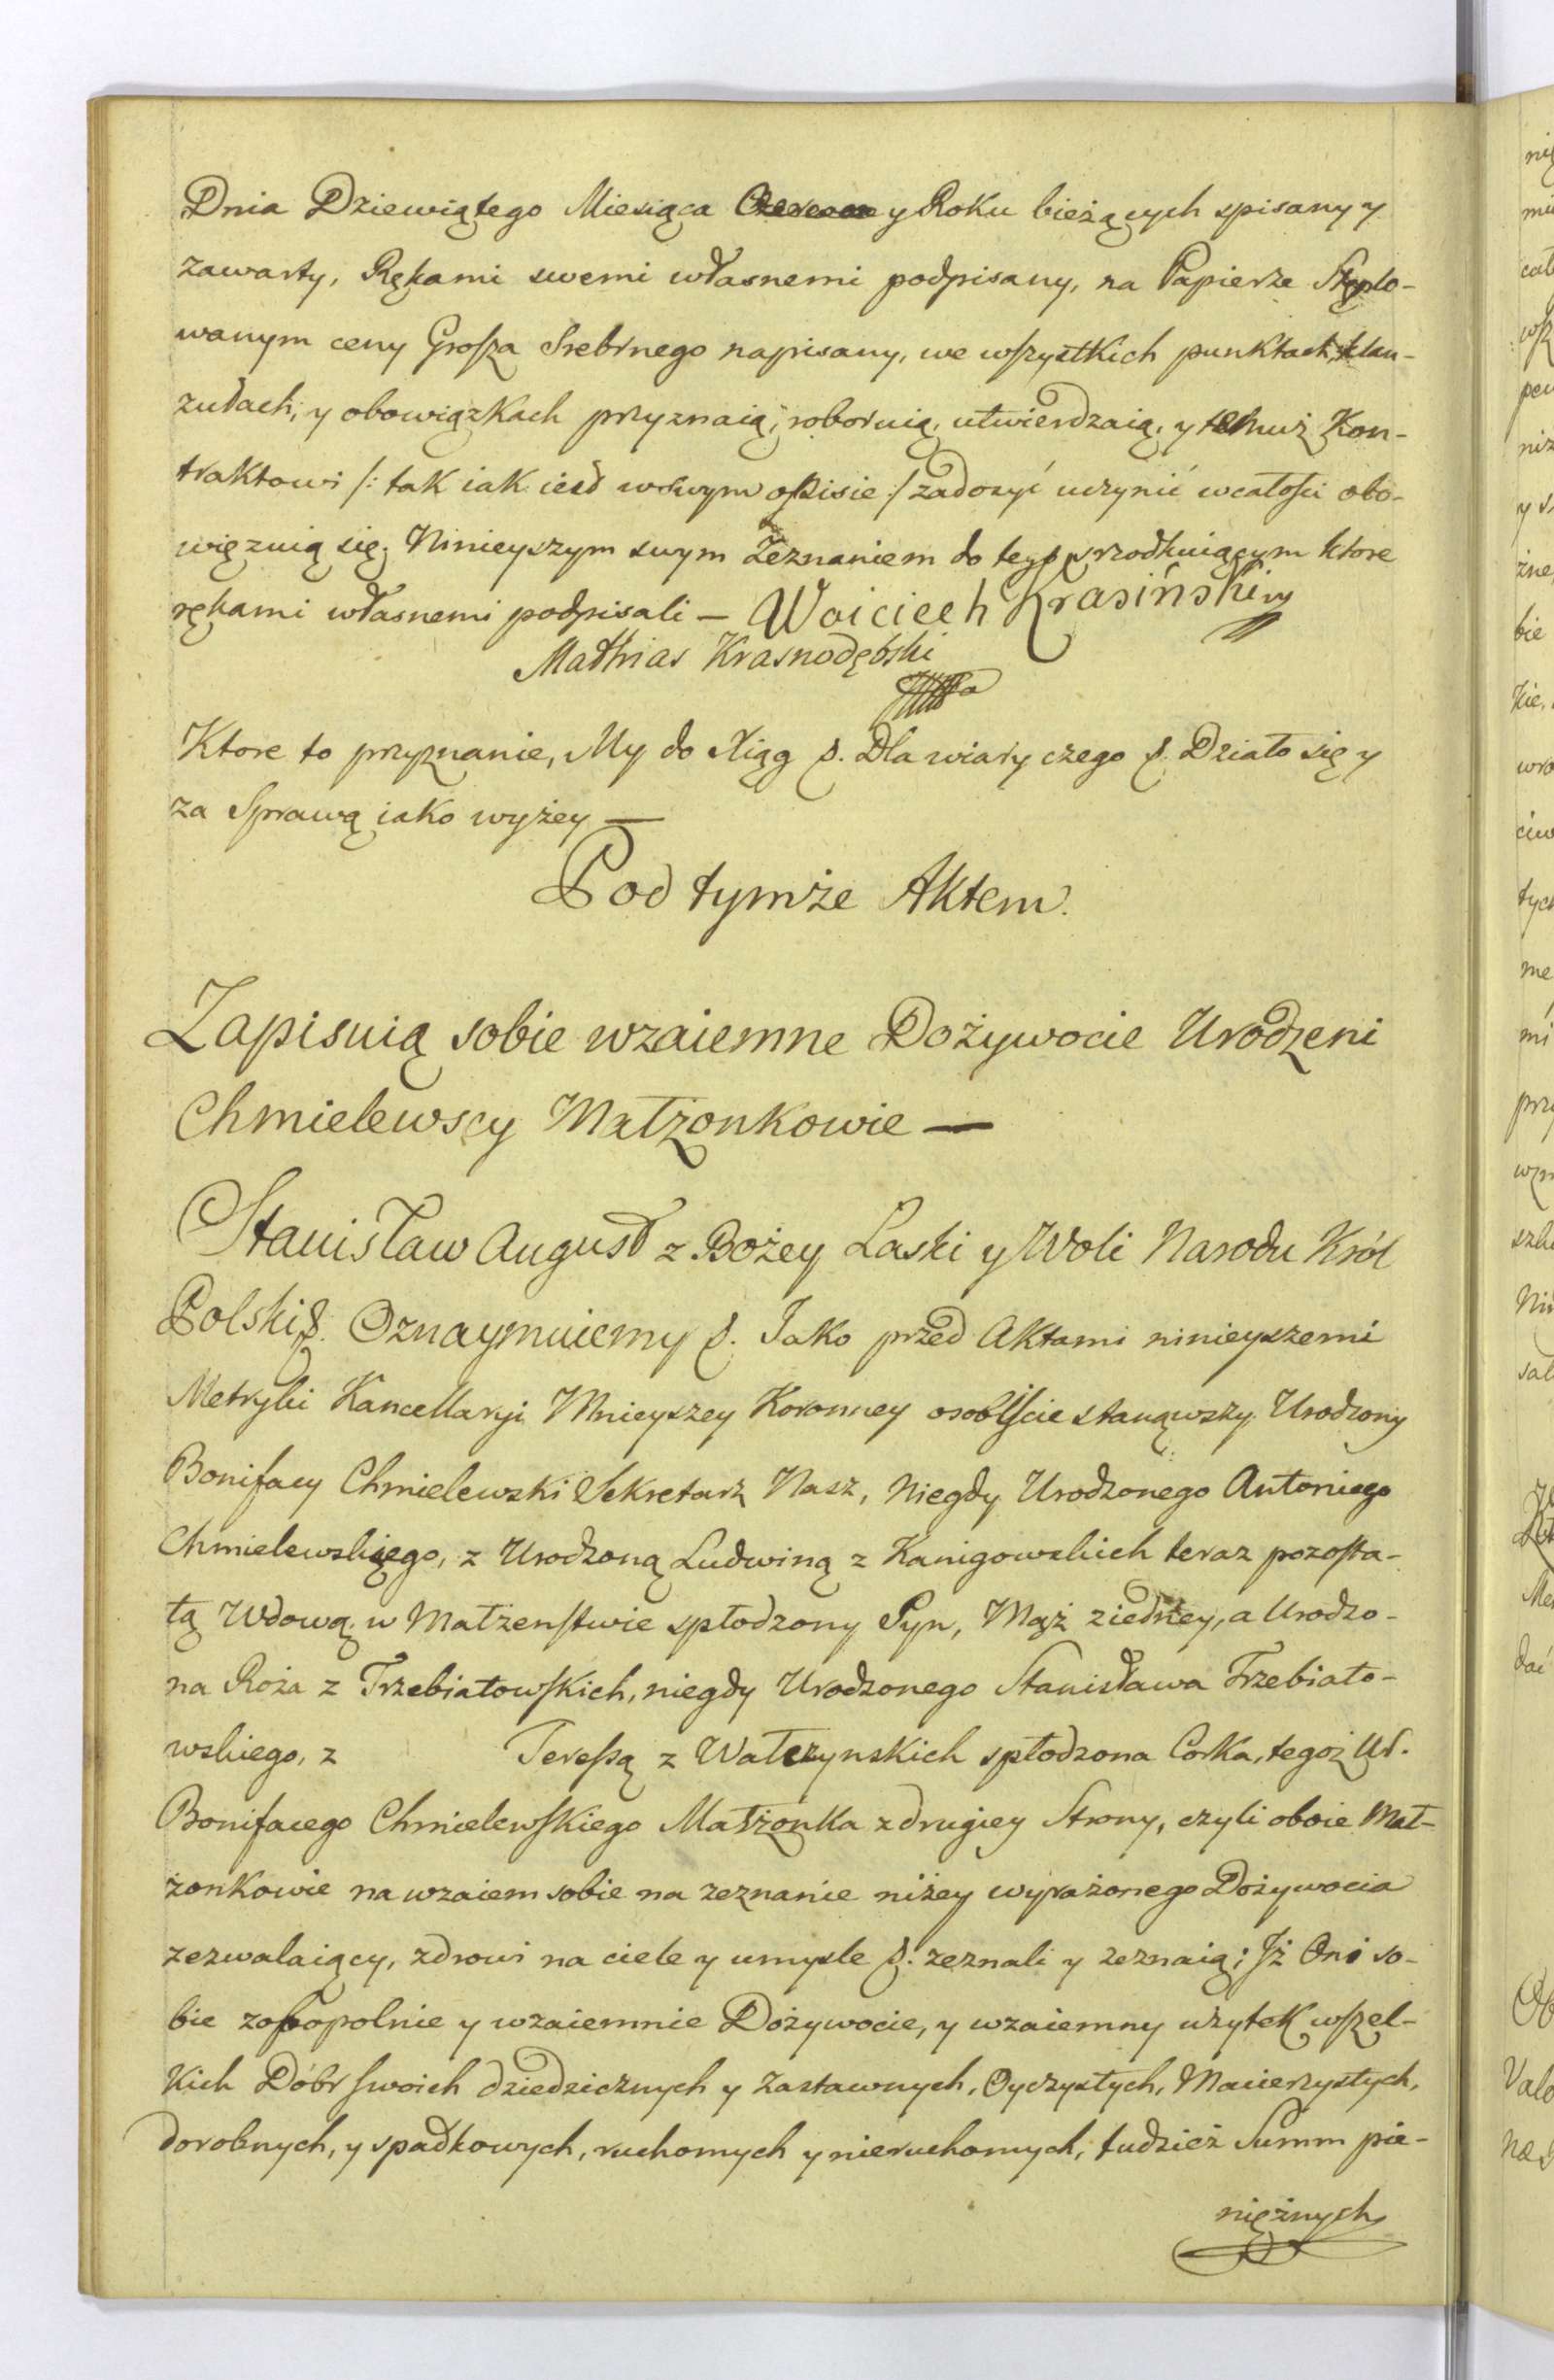 Dnia Dziewiątego Miesiąca Czerwca y Roku bieżących spisany y
zawarty, Rękami swemi własnemi podpisany, na Papierze Stęplo-
wanym ceny Grosza Srebrnego napisany, we wszystkich punktach, klau-
zulach, y obowiązkach przyznaią, roboruią, utwierdzaią, y temuż Kon-
traktowi /: tak iak iest w swym opisie :/ zadosyć uczynić wcałości obo-
więzuią się. Ninieyszym swym Zeznaniem do tego srzodkuiącym ktore
rękami własnemi podpisali — Woiciech Krasiński
Mathias Krasnodębski
Ktore to przyznanie, My do Xiąg &. Dla wiary czego &. Działo się y
za Sprawą iako wyżey —
Pod tymże Aktem.
Zapisuią sobie wzaiemne Dożywocie Urodzeni
Chmielewscy Małżonkowie —
Stanisław August z Bożey Łaski y Woli Narodu Król
Polski &. Oznaymuiemy &. Jako przed Aktami ninieyszemi
Metryki Kancellaryi Mnieyszey Koronney osobiście stanąwszy Urodzony
Bonifacy Chmielewski Sekretarz Nasz, Niegdy Urodzonego Antoniego
Chmielewskiego, z Urodzoną Ludwiną z Kanigowskich teraz pozosta-
łą Wdową w Małżenstwie spłodzony Syn, Mąż ziedney, a Urodzo-
na Roża z Trzebiatowskich, niegdy Urodzonego Stanisława Trzebiato-
wskiego, z Teressą z Wałczynskich spłodzona Corka, tegoż Ur.
Bonifacego Chmielewskiego Małżonka z drugiey Strony, czyli oboie Mał-
żonkowie na wzaiem sobie na zeznanie niżey wyrażonego Dożywocia
zezwalaiący, zdrowi na ciele y umysle &. zeznali y zeznaią; Jż Oni so-
bie zobopolnie y wzaiemnie Dożywocie, y wzaiemny użytek wszel-
kich Dóbr swoich dziedzicznych y Zastawnych, Oyczystych, Macierzystych,
dorobnych, y spadkowych, ruchomych y nieruchomych, tudzież Summ pie-
niężnych